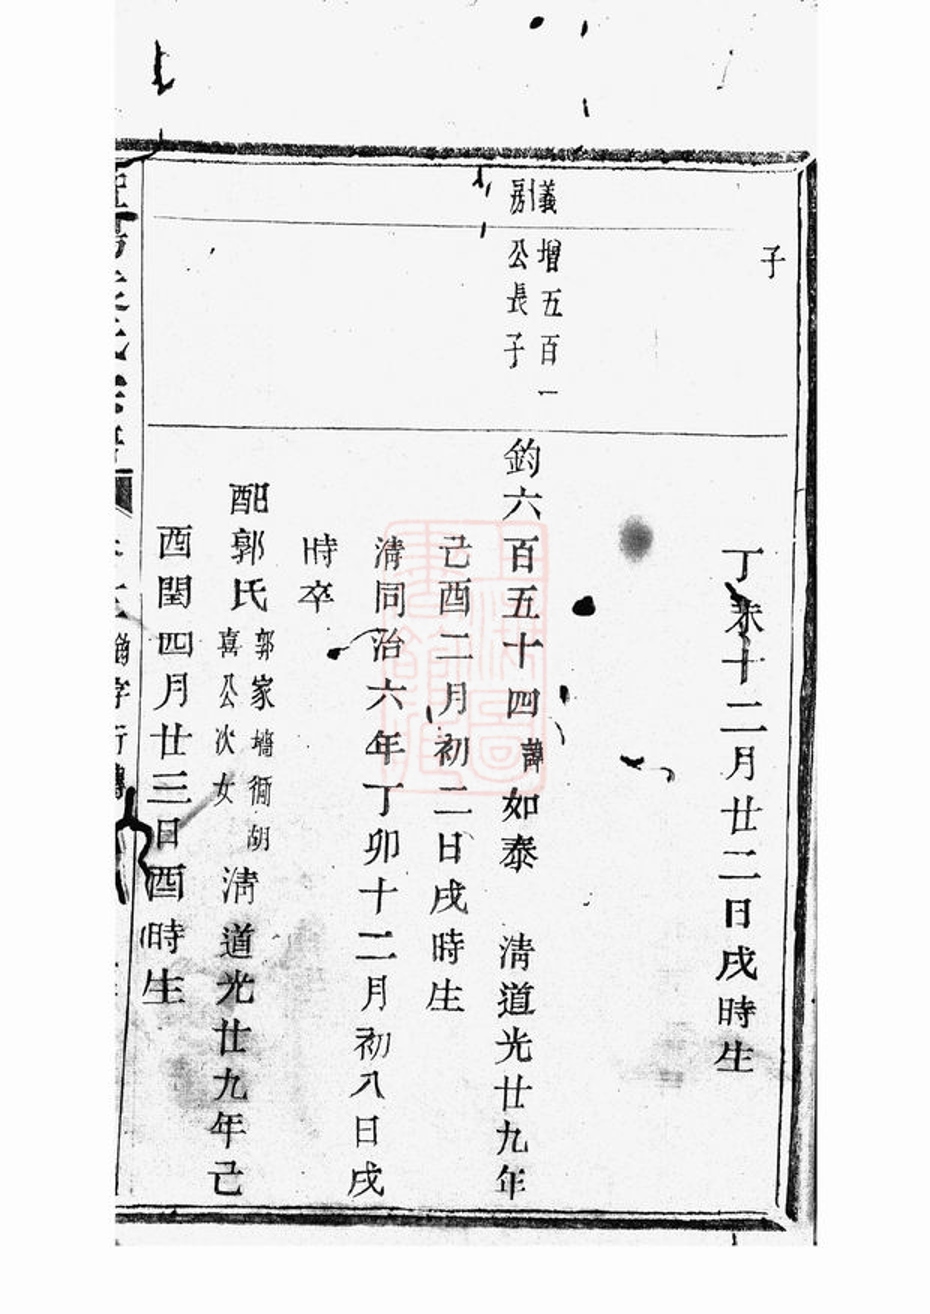 子
丁未十二月廿二日戌時生
義房
增五百一
公長子
鈞六百五十四諱如泰 清道光廿九年
己酉二月初二日戌時生
清同治六年丁卯十二月初八日戌
時卒
配郭氏郭家墻衕胡
喜公次女清道光廿九年己
酉閏四月廿三日酉時生